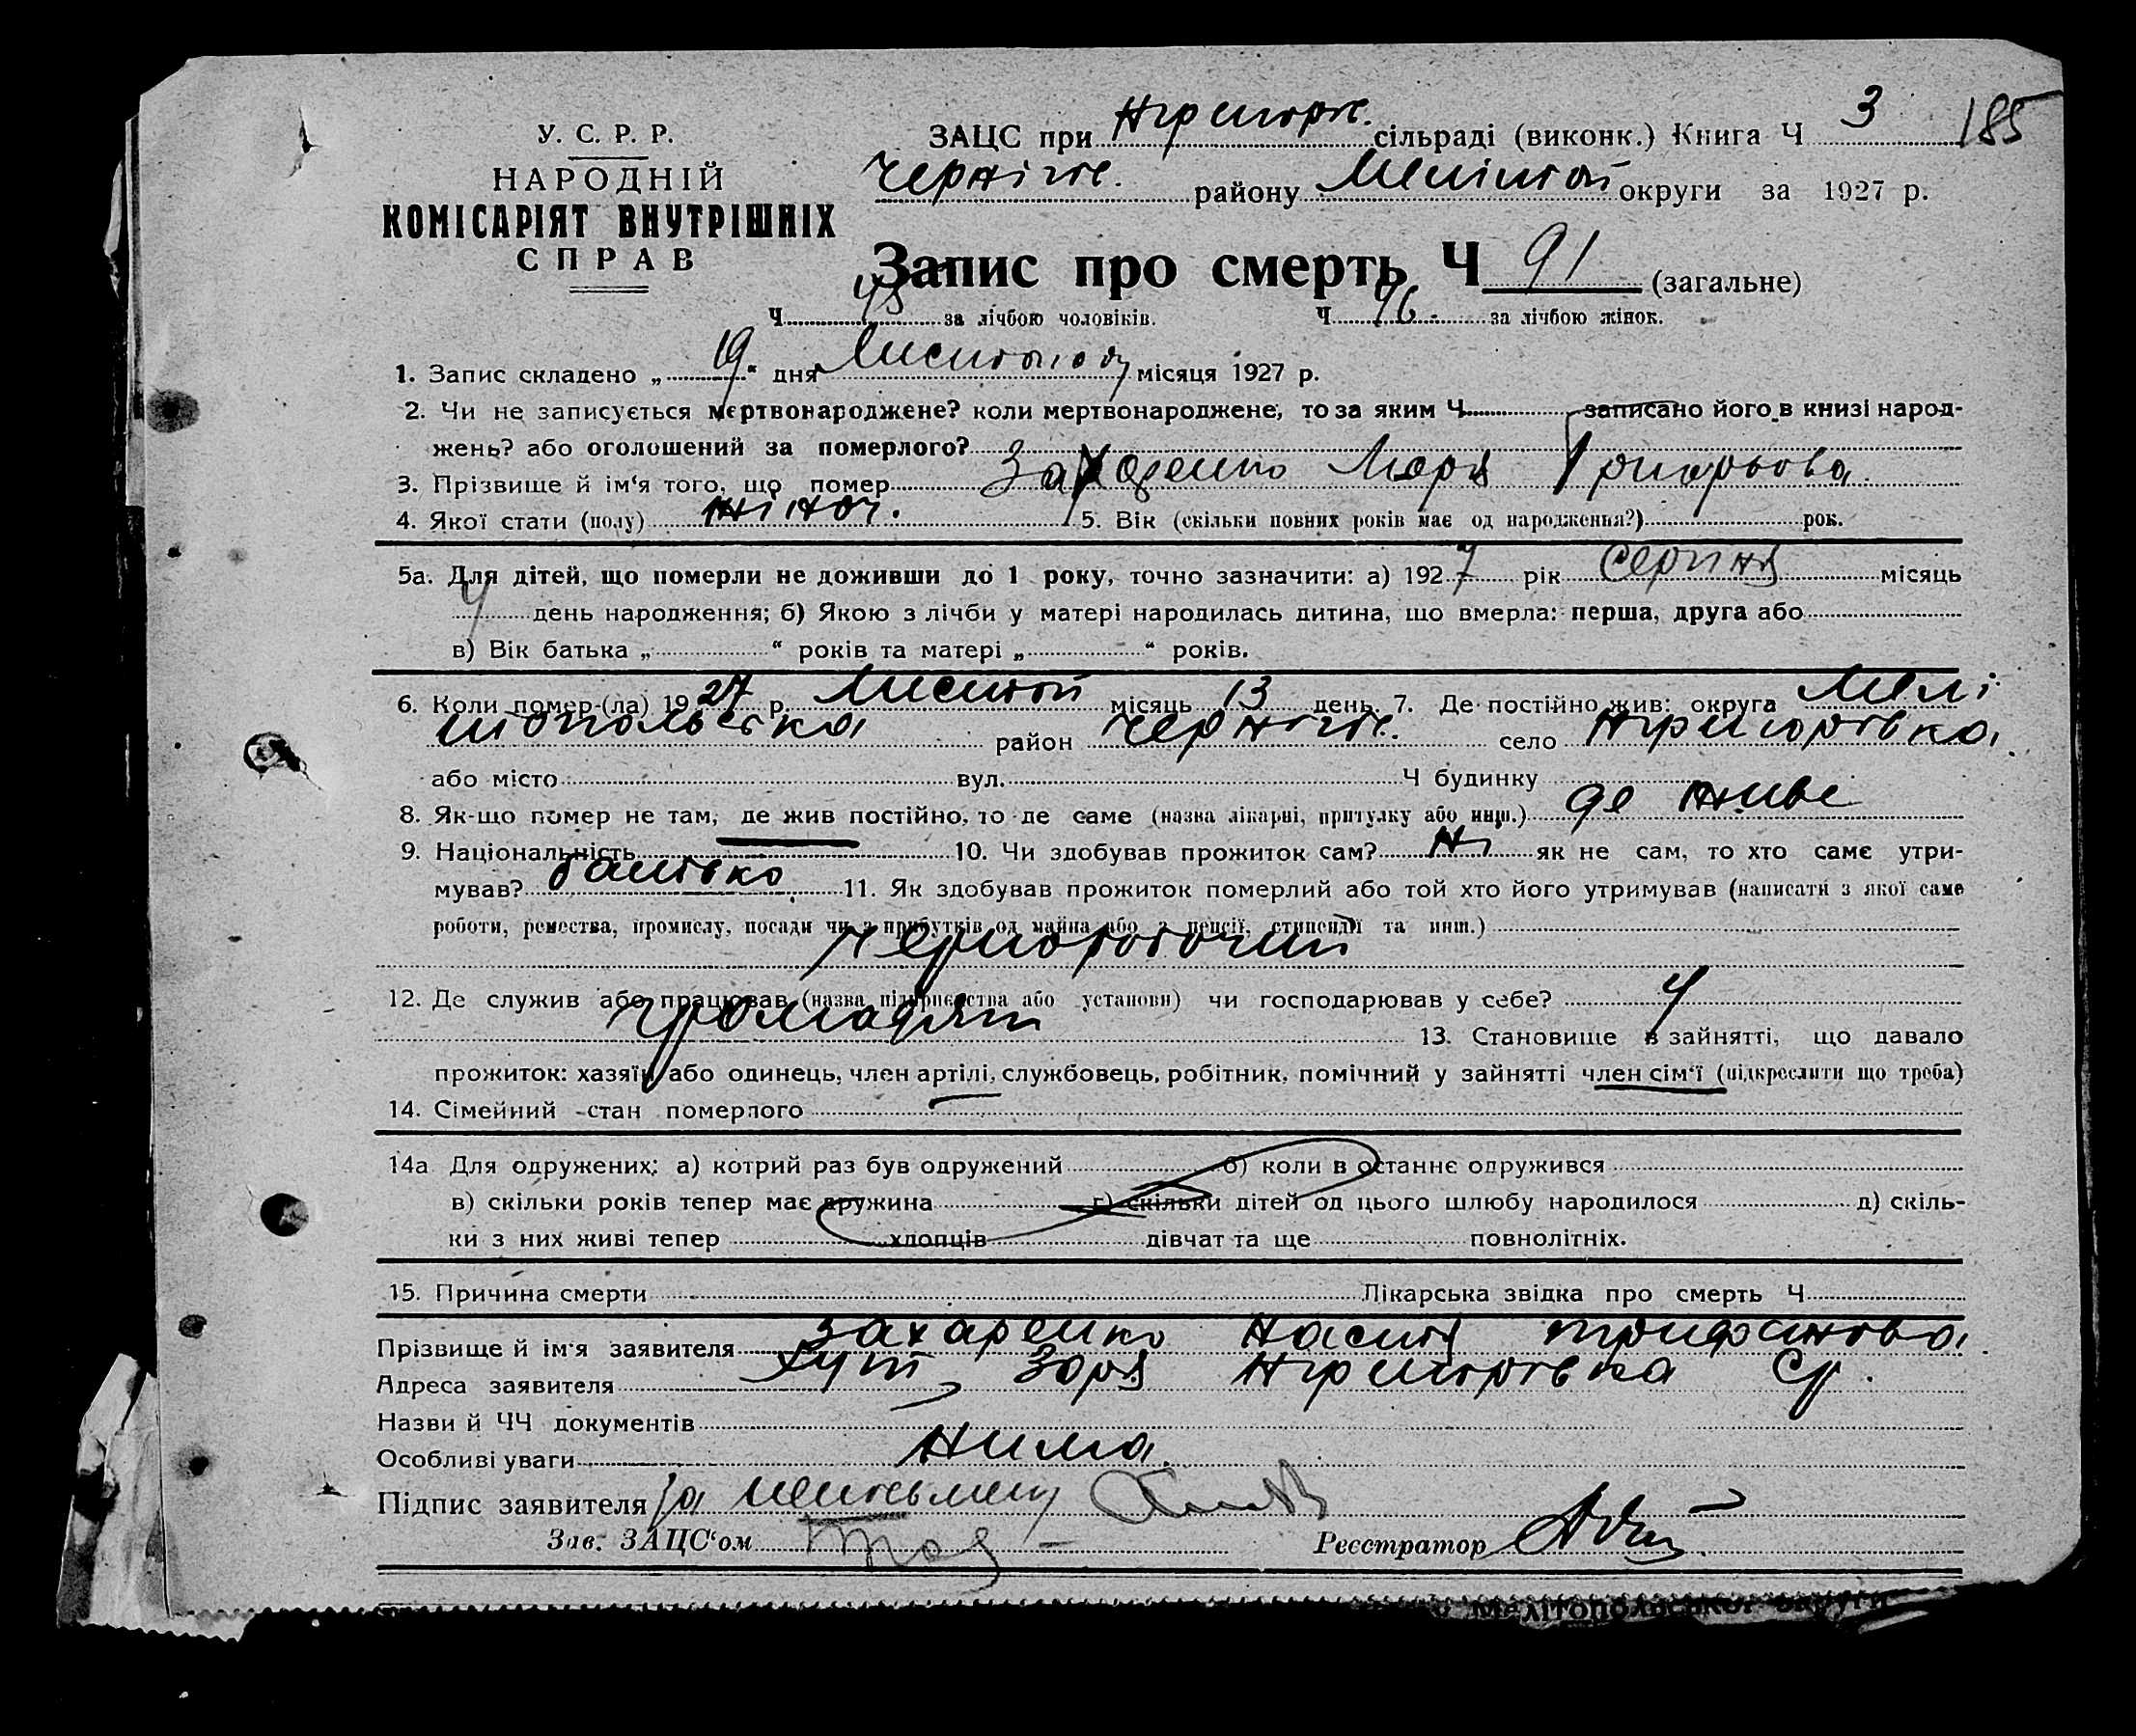 У. С. Р. Р.
НАРОДНІЙ
КОМІСАРІЯТ ВНУТРІШНІХ
СПРАВ
ЗАЦС при сільраді (виконк.) Книга Ч 3 185
Черніге. району Меліtоп округи за 1927 р.
Запис про смерть Ч 91 (загальне)
Ч 45 за лічбою чоловіків. Ч 46. за лічбою жінок.
1. Запис складено „19“ дня Листопаду місяця 1927 р.
2. Чи не записується мертвонароджене? коли мертвонароджене, то за яким Ч записано його в книзі народ-
жень? або оголошений за померлого?
3. Прізвище й ім‘я того, що помер Захаренко Марія Григорьова
4. Якої стати (полу) жіноч. 5. Вік (скільки повних років має од народження?) рок.
5а. Для дітей, що померли не доживши до 1 року, точно зазначити: а) 1927 рік Серпня місяць
4 день народження; б) Якою з лічби у матері народилась дитина, що вмерла: перша, друга або
в) Вік батька „ “ років та матері „ “ років.
6. Коли помер-(ла) 1927 р. Листоп місяць 13 день. 7. Де постійно жив: округа Мелі-
топольська район Черніге. село
або місто вул. Ч будинку
8. Як-що помер не там, де жив постійно, то де саме (назва лікарні, притулку або инш.) де живе
9. Національність 10. Чи здобував прожиток сам? Ні як не сам, то хто саме утри-
мував? батько 11. Як здобував прожиток померлий або той хто його утримував (написати з якої саме
роботи, ремества, промислу, посади чи з прибутків од майна або з пенсії, стипендії та инш.)
12. Де служив або працював (назва підприємства або установи) чи господарював у себе? У
громадян 13. Становище в зайнятті, що давало
прожиток: хазяїн або одинець, член артілі, службовець, робітник, помічний у зайнятті член сім‘ї (підкреслити що треба)
14. Сімейний стан померлого
14а Для одружених: а) котрий раз був одружений б) коли в останнє одружився
в) скільки років тепер має дружина г) скільки дітей од цього шлюбу народилося д) скіль-
ки з них живі тепер хлопців дівчат та ще повнолітніх.
15. Причина смерти Лікарська звідка про смерть Ч
Прізвище й ім‘я заявителя Захаренко Настя Трифанова
Адреса заявителя хут Зоря
Назви й ЧЧ документів
Особливі уваги Нима
Підпис заявителя За
Зав. ЗАЦС‘ом Реєстратор
Мелітопольської округи